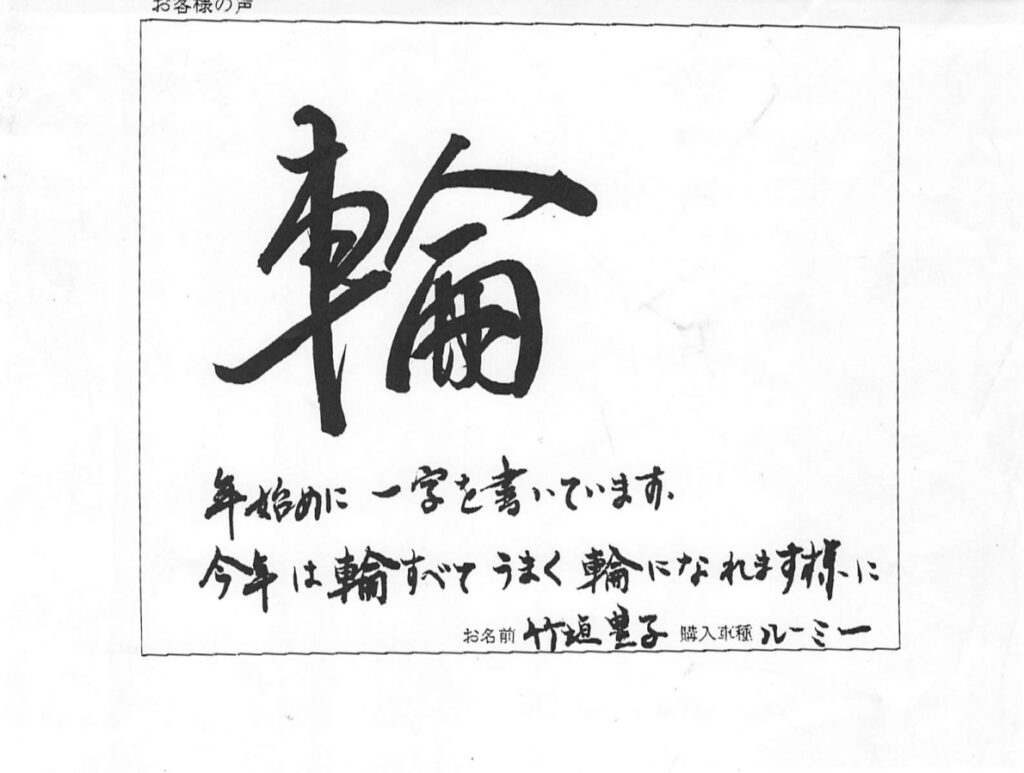 お客様の声
輪
年始めに 一字を書いています.
今年は輪すべて うまく輪になれます様に
お名前 竹垣豊子 購入車種 ルーミー